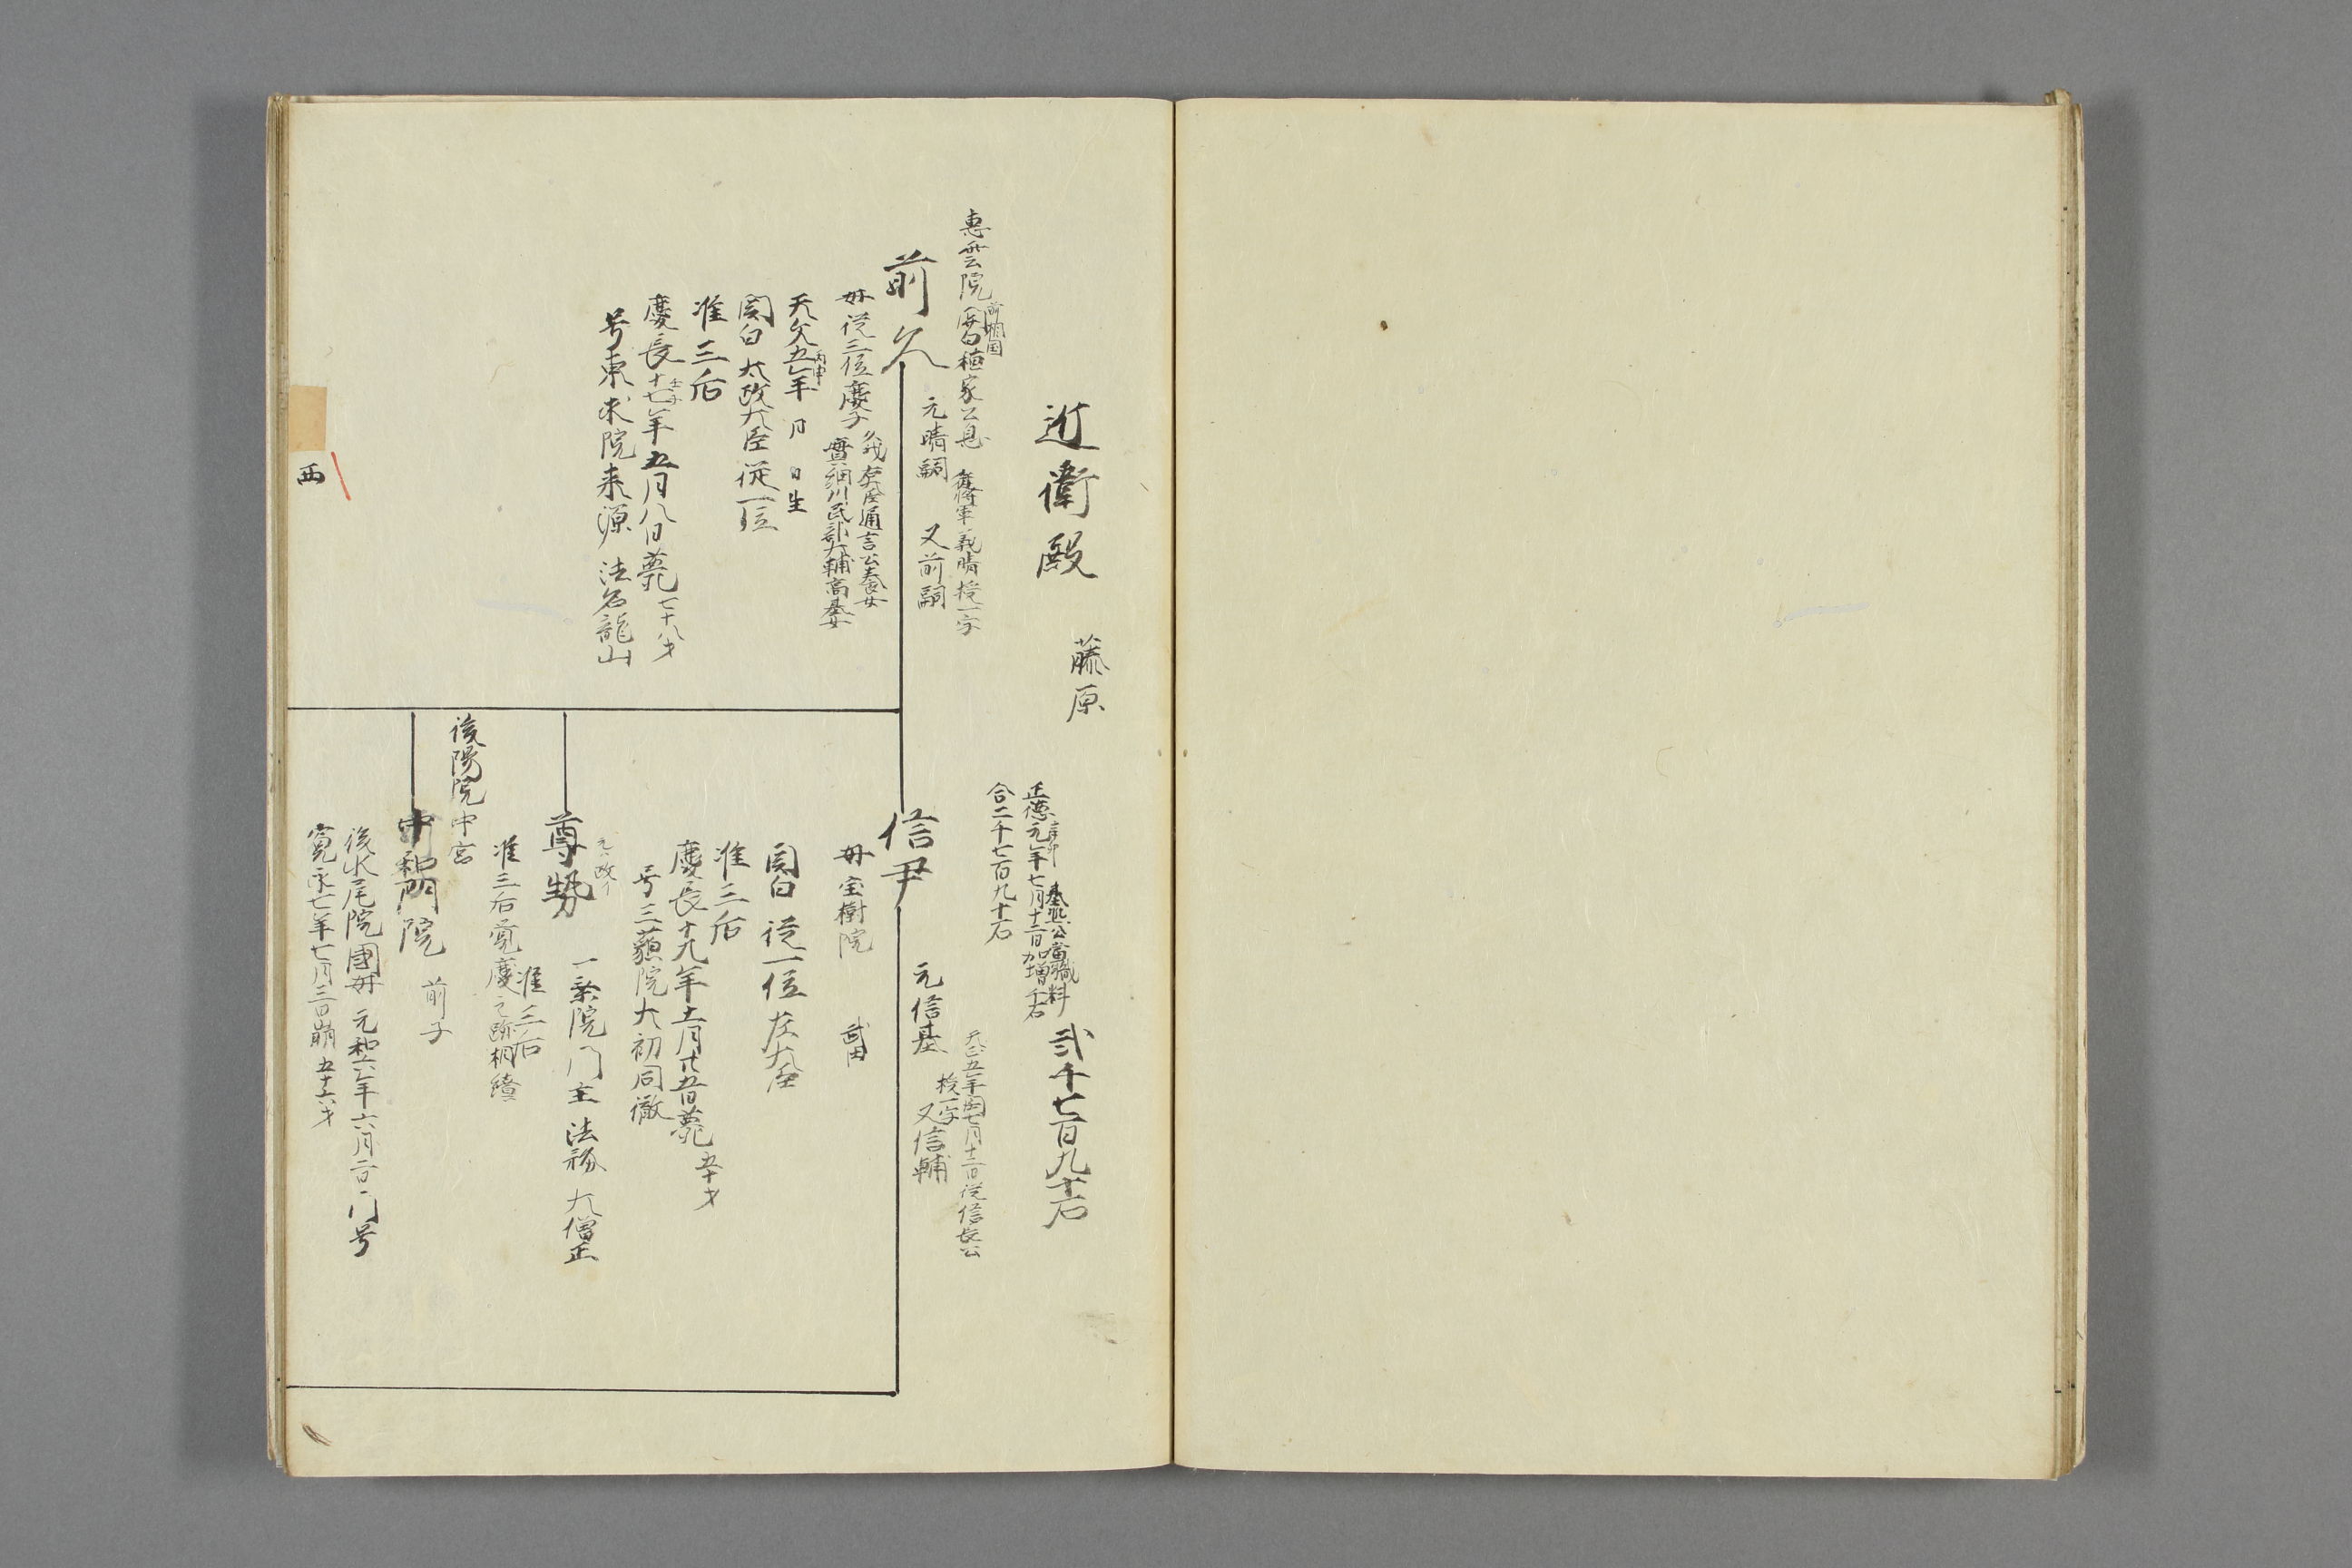 近衛殿
藤原
正徳元年七月十三日加増千石
基煕公当職料
合二千七百九十石
弐千七百九十石
恵雲院 関白植家公息 旧将軍義晴授一字
前相国
前久
元晴嗣 又前嗣
母従三位慶子
久我存庵通言公養女
実細川民部大輔高基女
天文五年 月 日生
丙申
関白 太政大臣従一位
准三后
慶長十七年五月八日薨 七十八才
壬子
号東求院来源 法名龍山
信尹
元信基 又信輔
天正五年閏七月十二日従信長公
授一字
母宝樹院
武田
関白 従一位左大臣
准三后
慶長十九年十一月廿五日薨 五十才
号三藐院大初同徹
尊勢
一乗院門主 法務 大僧正
准三后
准三后覚慶之跡相続
後陽院中宮
中和門院 前子
後水尾院国母 元和六年六月二日門号
寛永七年七月三日崩 五十六才
西